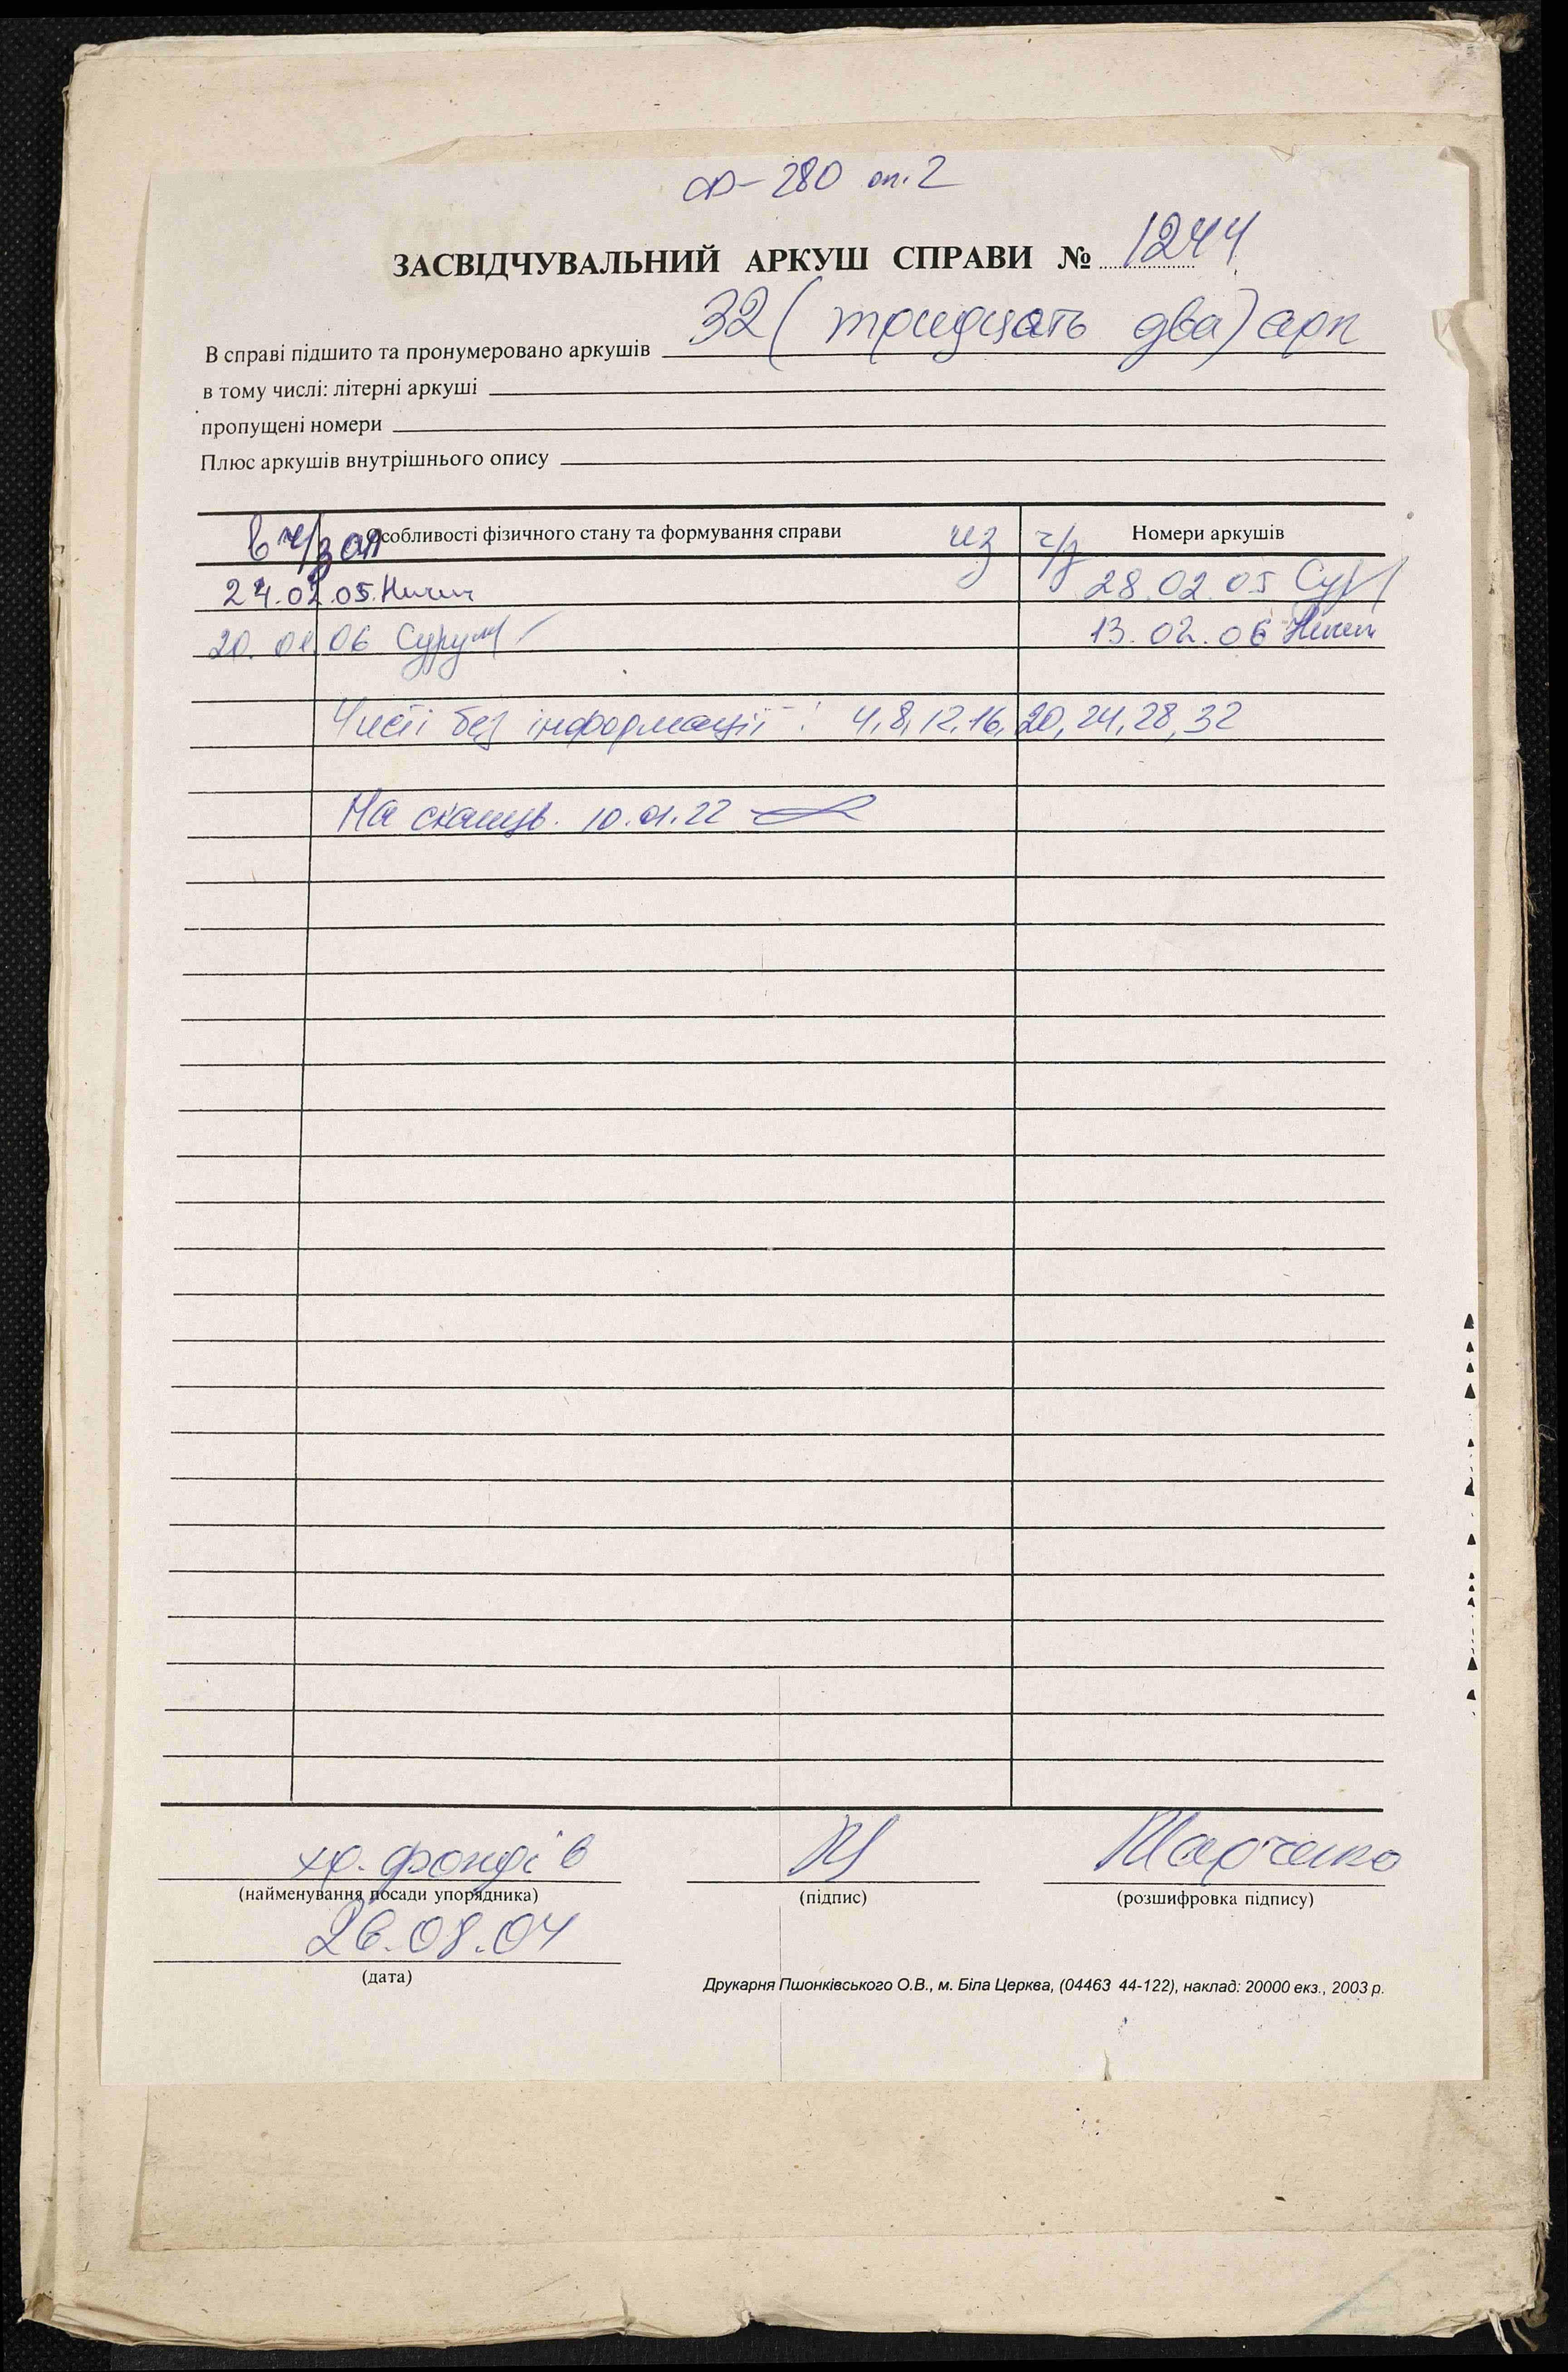 ф-280 оп.2
ЗАСВІДЧУВАЛЬНИЙ АРКУШ СПРАВИ № 1244
32 (тридцать два) арк
В справі підшито та пронумеровано аркушів
в тому числі: літерні аркуші
пропущені номери
Плюс аркушів внутрішнього опису
в ч/зал Особливості фізичного стану та формування справи из ч/з Номери аркушів
24.02.05 28.02.05
20.01.06 13.02.06
Чисті без інформації: 4, 8, 12, 16, 20, 24, 28, 32
На сканув. 10.01.22
хр. фондів Марченко
(найменування посади упорядника) (підпис) (розшифровка підпису)
26.08.04
(дата)
Друкарня Пшонківського О.В., м. Біла Церква, (04463 44-122), наклад: 20000 екз., 2003 р.